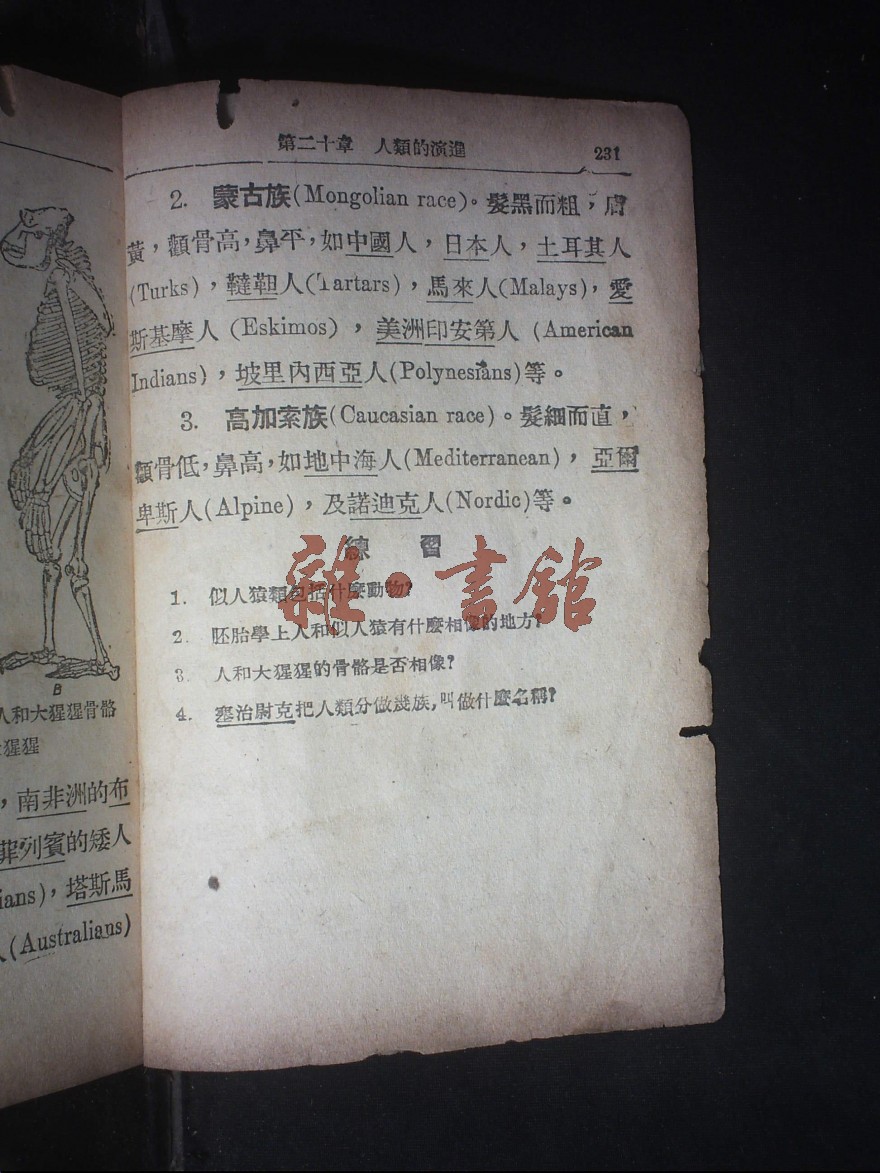 B
人和大猩猩骨骼
猩猩
，南非洲的布
菲列賓的矮人
ians)，塔斯馬
人(Australians)
第二十章　人類的演進　231
2. 蒙古族(Mongolian race)。髮黑而粗，膚
黃，顴骨高，鼻平，如中國人，日本人，土耳其人
(Turks)，韃靼人(Tartars)，馬來人(Malays)，愛
斯基摩人 (Eskimos)，美洲印安第人 (American
Indians)，坡里內西亞人(Polynesians)等。
3. 高加索族(Caucasian race)。髮細而直，
顴骨低，鼻高，如地中海人(Mediterranean)，亞爾
卑斯人(Alpine)，及諾迪克人(Nordic)等。
練　習
1. 似人猿類包括什麼動物？
2. 胚胎學上人和似人猿有什麼相像的地方？
3. 人和大猩猩的骨骼是否相像？
4. 塞治尉克把人類分做幾族，叫做什麼名稱？
雜·書館